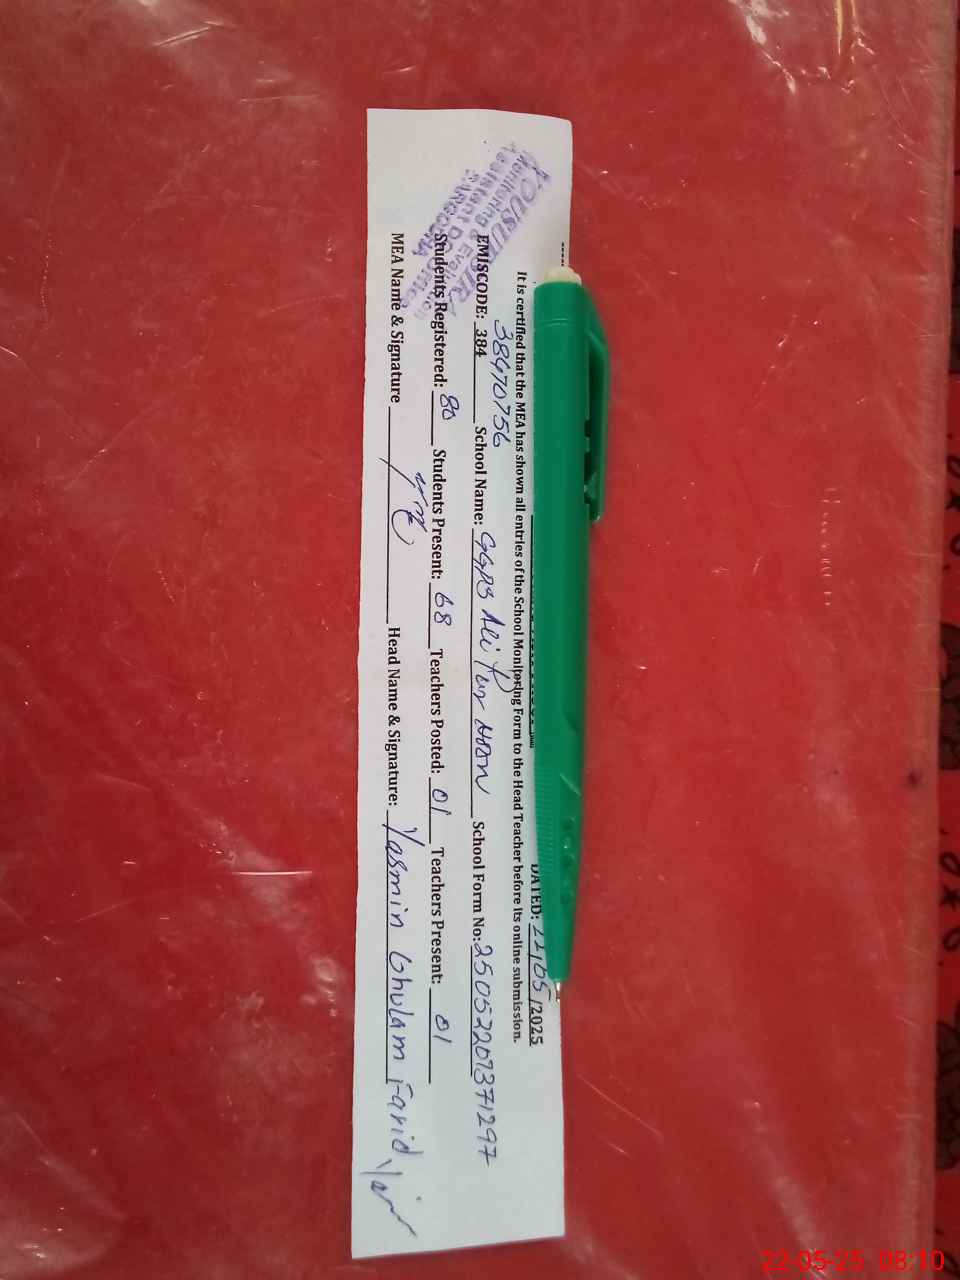 DATED: 22/05/2025
It is certified that the MEA has shown all entries of the School Monitoring Form to the Head Teacher before its online submission.
38470756
EMISCODE: 384 School Name: GGPS Ali Pur Noon School Form No: 25052207371297
Students Registered: 80 Students Present: 68 Teachers Posted: 01 Teachers Present: 01
MEA Name & Signature Head Name & Signature: Yasmin Ghulam Farid
Monitoring & Evaluation
SARGODHA
22-05-25 08:10